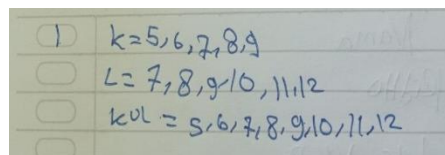 1 K=5,6,7,8,9
L=7,8,9,10,11,12
KUL=5,6,7,8,9,10,11,12